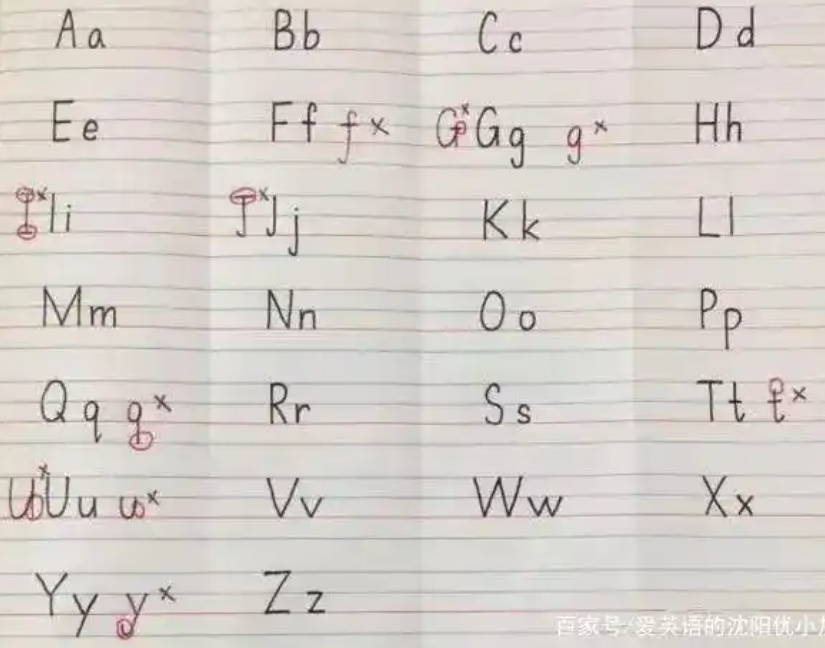 Aa Bb Cc Dd
Ee Ff f × G × Gg g × Hh
I × Ii J × Jj Kk Ll
Mm Nn Oo Pp
Qq q × Rr Ss Tt t ×
U × Uu u × Vv Ww Xx
Yy y × Zz
百家号/爱英语的沈阳优小